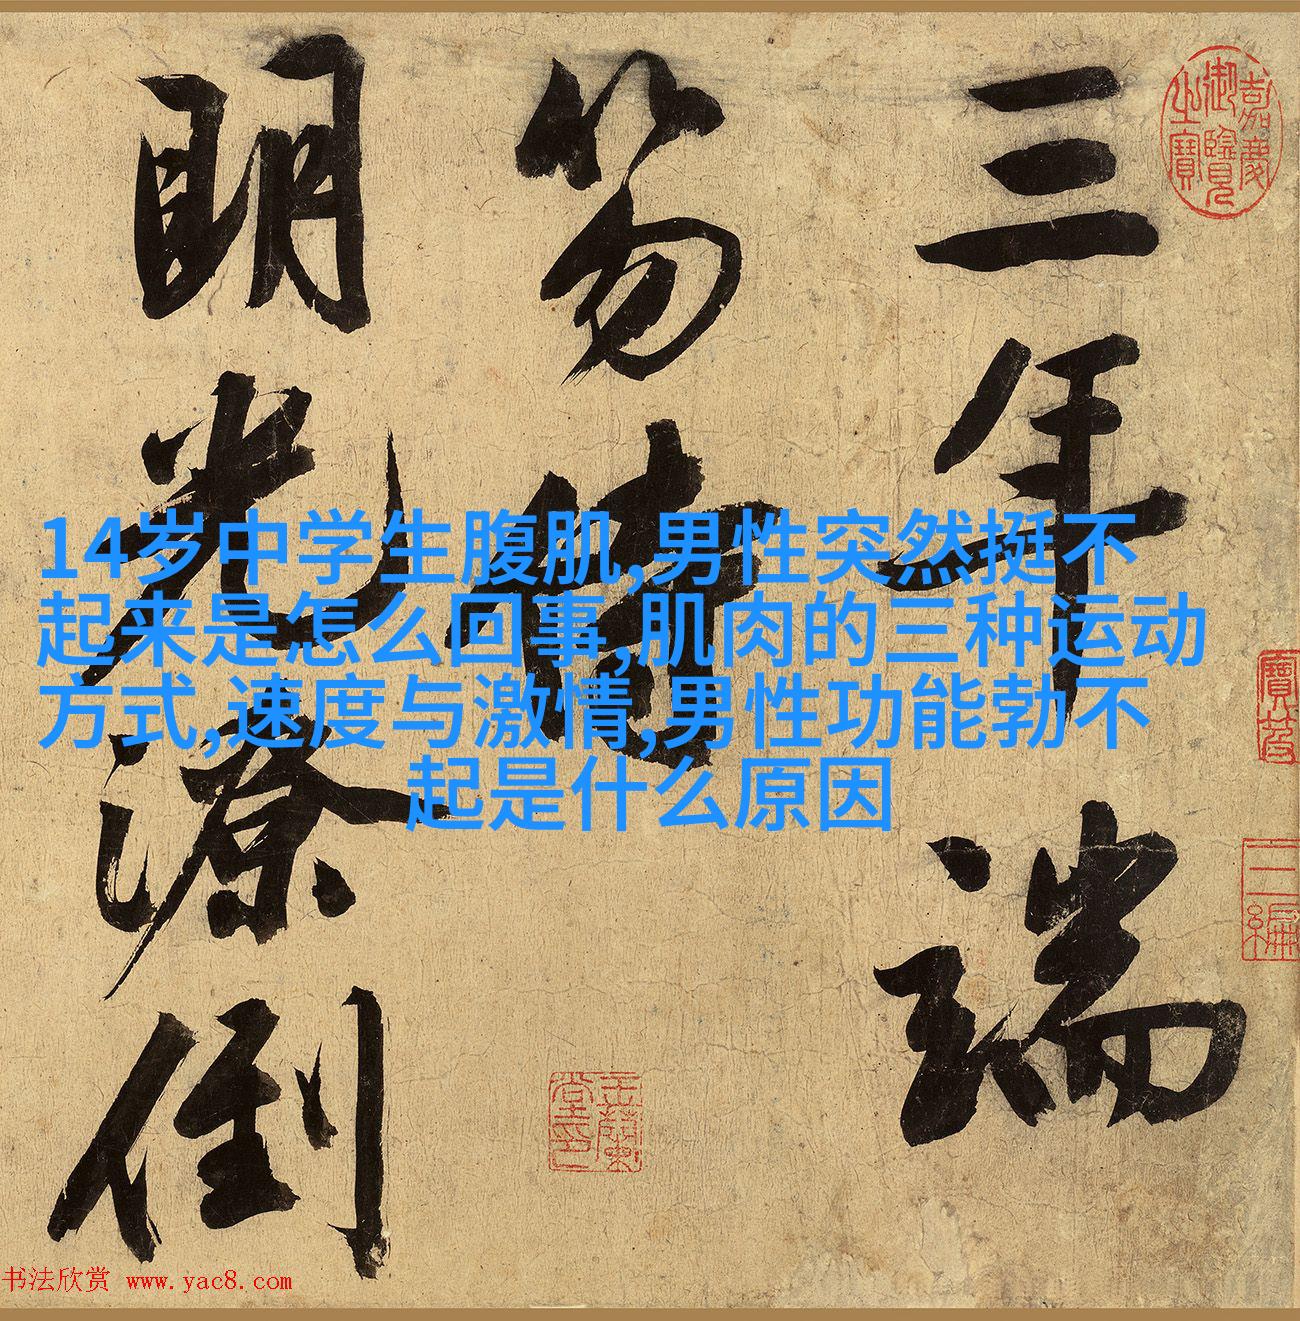 三年端
笏待
明光潦倒
14岁中学生腹肌,男性突然挺不
起来是怎么回事,肌肉的三种运动
方式,速度与激情,男性功能勃不
起是什么原因
嘉慶
御覽
之寶
寶笈
三編
书法欣赏 www.yac8.com